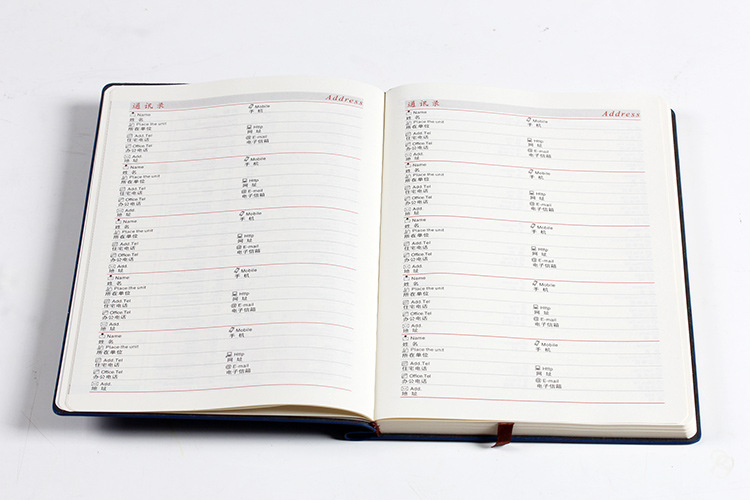 通讯录 Address
Name Mobile
姓名 手机
Place the unit
所在单位
Add.Tel Http
住宅电话 网址
Office.Tel E-mail
办公电话 电子信箱
Add.
地址
Name Mobile
姓名 手机
Place the unit
所在单位
Add.Tel Http
住宅电话 网址
Office.Tel E-mail
办公电话 电子信箱
Add.
地址
Name Mobile
姓名 手机
Place the unit
所在单位
Add.Tel Http
住宅电话 网址
Office.Tel E-mail
办公电话 电子信箱
Add.
地址
Name Mobile
姓名 手机
Place the unit
所在单位
Add.Tel Http
住宅电话 网址
Office.Tel E-mail
办公电话 电子信箱
Add.
地址
Name Mobile
姓名 手机
Place the unit
所在单位
Add.Tel Http
住宅电话 网址
Office.Tel E-mail
办公电话 电子信箱
Add.
地址
通讯录 Address
Name Mobile
姓名 手机
Place the unit
所在单位
Add.Tel Http
住宅电话 网址
Office.Tel E-mail
办公电话 电子信箱
Add.
地址
Name Mobile
姓名 手机
Place the unit
所在单位
Add.Tel Http
住宅电话 网址
Office.Tel E-mail
办公电话 电子信箱
Add.
地址
Name Mobile
姓名 手机
Place the unit
所在单位
Add.Tel Http
住宅电话 网址
Office.Tel E-mail
办公电话 电子信箱
Add.
地址
Name Mobile
姓名 手机
Place the unit
所在单位
Add.Tel Http
住宅电话 网址
Office.Tel E-mail
办公电话 电子信箱
Add.
地址
Name Mobile
姓名 手机
Place the unit
所在单位
Add.Tel Http
住宅电话 网址
Office.Tel E-mail
办公电话 电子信箱
Add.
地址